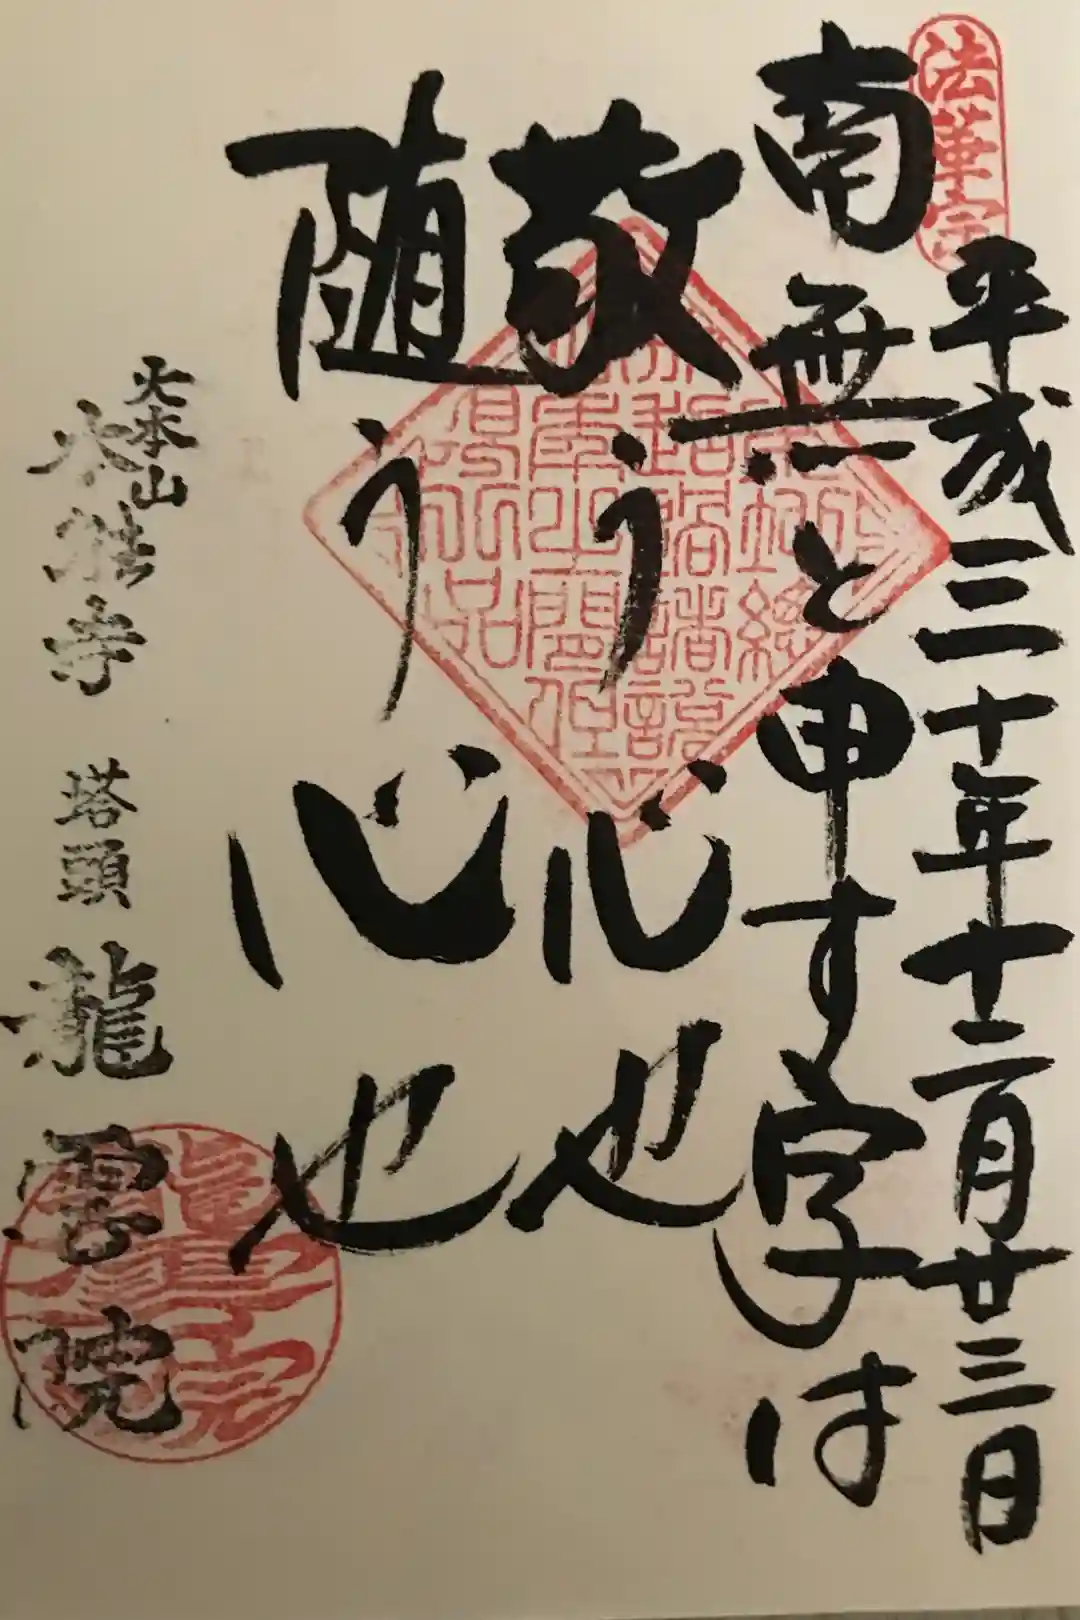 法華宗
平成三十年十二月廿三日
南無一と申す字は
敬う心也
随う心也
大本山
本能寺 塔頭 龍雲院